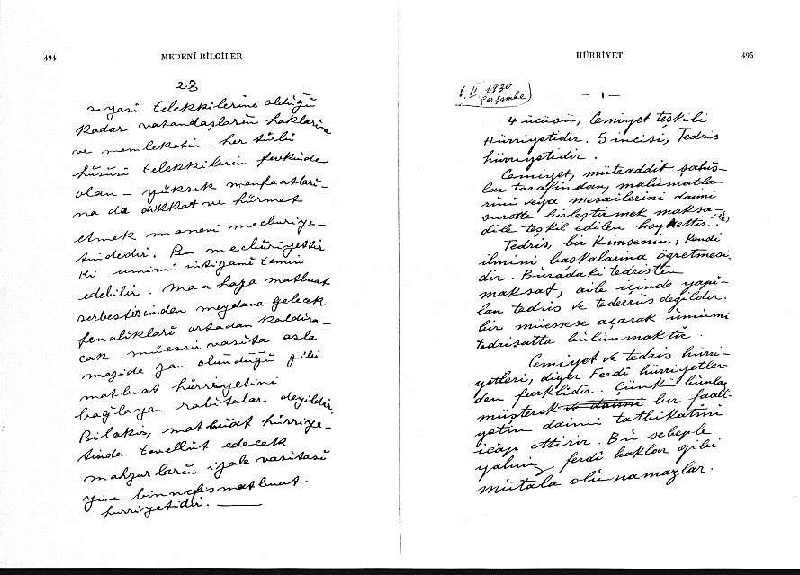 494
MEDENİ BİLGİLER
23
siyasi telekkilerine olduğu
kadar vatandaşların haklarına
ve memleketin her türlü
hususi telekkilerin fevkinde
olan – yüksek menfaatları-
na da dikkat ve hürmet
etmek manevi mecburiye-
tindedir. Bu mecburiyettir
ki umumi intizamı temin
edebilir. Maahaza matbuat
serbestisinden meydana gelecek
fenalıkları ortadan kaldıra-
cak müessir vasıta asla
mazide zan olunduğu gibi
matbuat hürriyetini
bağlayan rabıtalar değildir.
Bilakis, matbuat hürriye-
tinde tevellüt edecek
mahzurların izale vasıtası
yine binnefis matbuat
hürriyetidir.
HÜRRİYET
495
1930
Perşembe
– 1 –
4 üncüsü, Cemiyet teşkili
Hürriyetidir. 5 incisi, Tedris
hürriyetidir.
Cemiyet, müteaddit şahıs-
lar tarafından, malûmatla-
rını veya mesailerini daimi
surette birleştirmek maksa-
dile teşkil edilen hey'ettir.
Tedris, bir kimsenin, kendi
ilmini başkalarına öğretmesi
dir. Buradaki tedristen
maksat, aile içinde yapı-
lan tedris ve tederrüs değildir.
bir müessese açarak umumi
tedrisatta bulunmaktır.
Cemiyet ve tedris hürri-
yetleri, diğer Ferdi hürriyetler
den farklıdır. Çünkü bunlar
müşterek ve daimi bir faali-
yetin daimi tatbikatını
icap ettirir. Bu sebeple
yalnız ferdi haklar gibi
mütala olunamazlar.